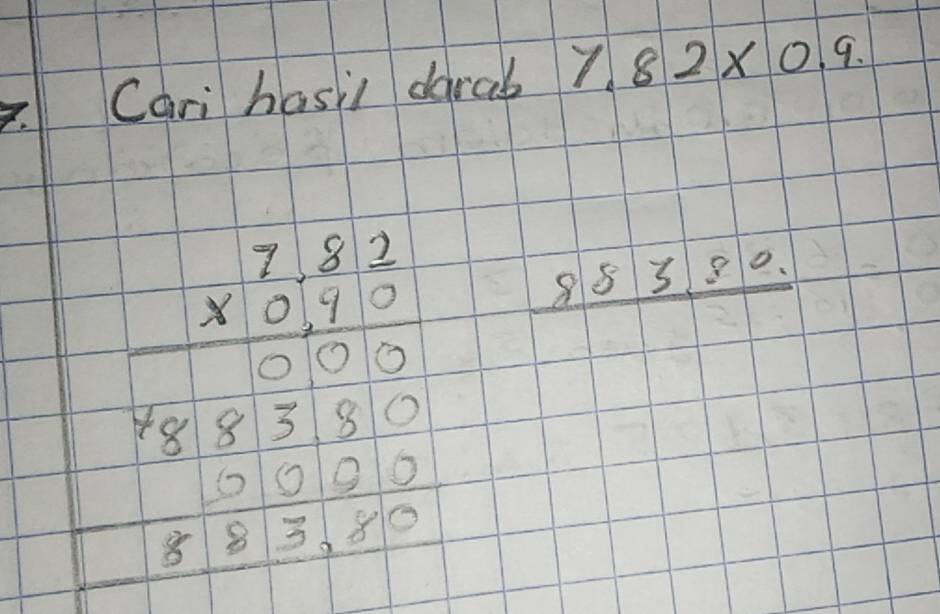 7. Cari hasil darab 7.82 x 0.9.
7.82
x 0.90
000
+88380
0000
883.80
883.80.